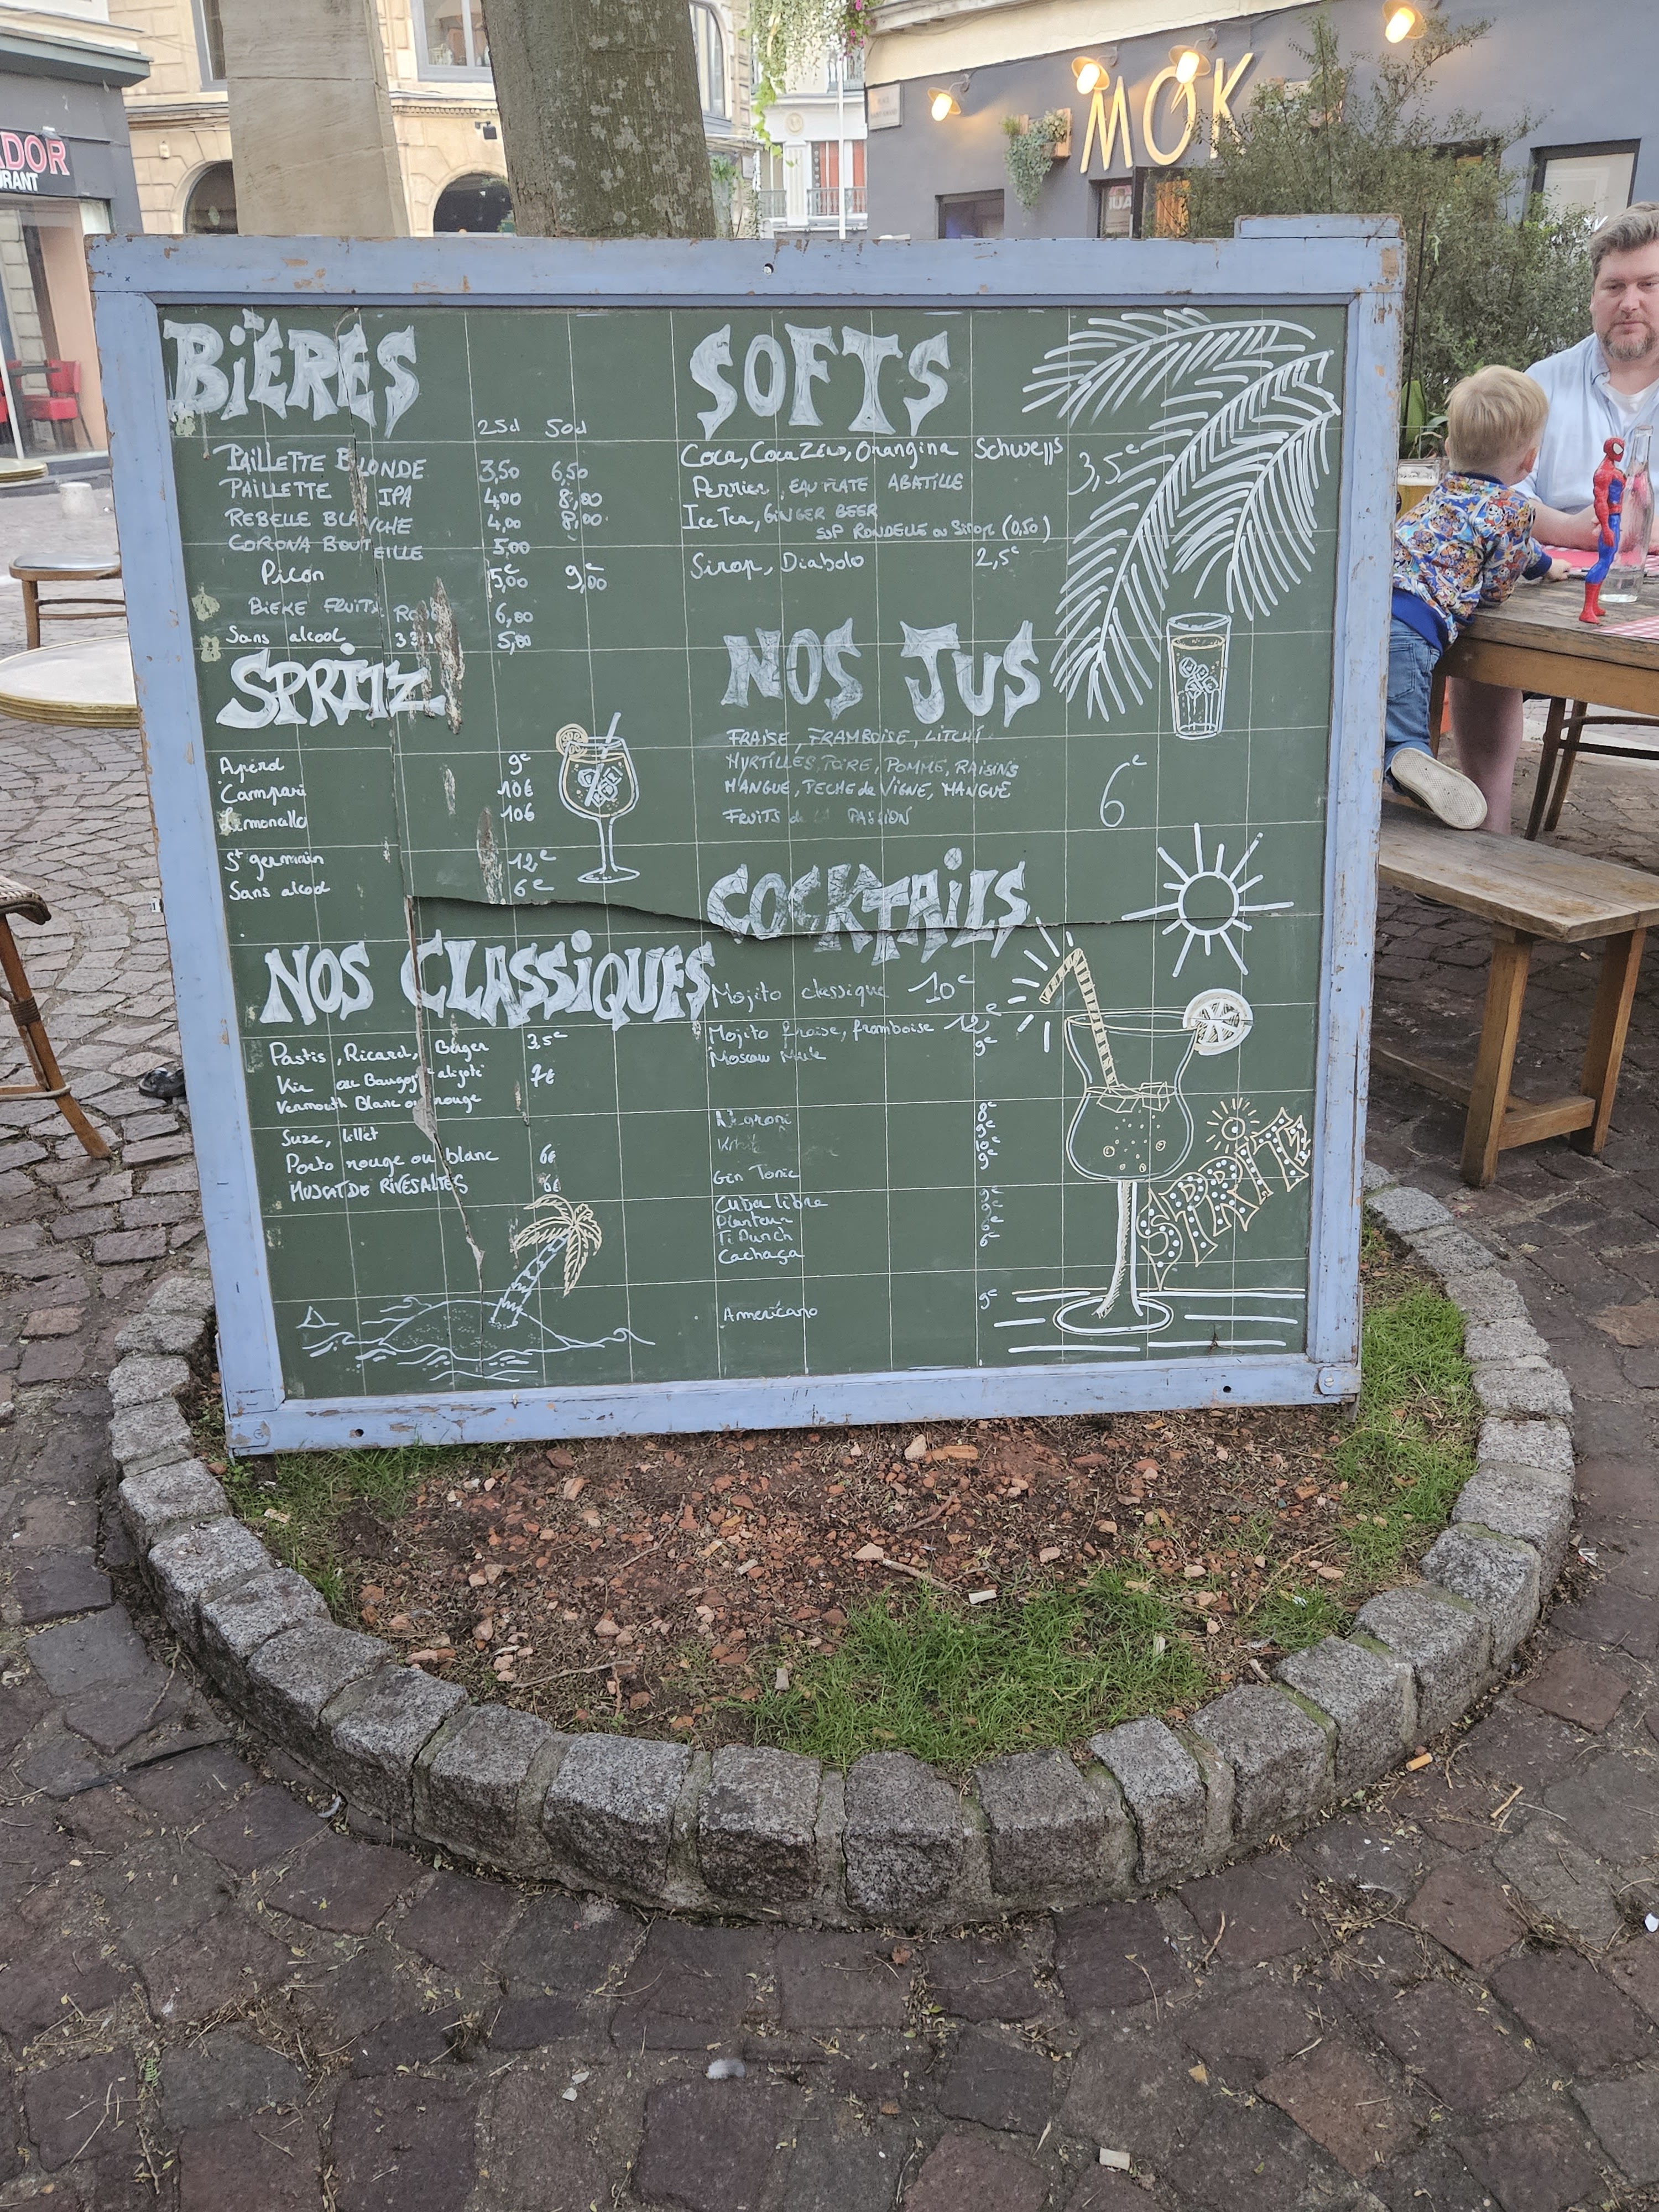 ADOR
RANT
MOK
BiÈRES
25cl 50cl
PAILLETTE BLONDE 3,50 6,50
PAILLETTE IPA 4,00 8,00
REBELLE BLANCHE 4,00 8,00
CORONA BOUTEILLE 5,00
Picon 5,00€ 9,00€
BIERE FRUITS 6,00
Sans alcool 5,00
SPRiTZ
Apérol 9€
Campari 10€
Limoncello 10€
St germain 12€
Sans alcool 6€
NOS CLASSiQUES
Pastis, Ricard, Berger 3.5€
Kir ou Bourgogne aligoté 7€
Vermouth Blanc ou rouge
Suze, lillet
Porto rouge ou blanc 6€
MUSCAT DE RIVESALTES 6€
SOFTS
Coca, Coca Zéro, Orangina Schwepps
3,5€
Perrier, EAU PLATE ABATILLE
Ice Tea, GINGER BEER
SUP RONDELLE ou Sirop (0,50)
Sirop, Diabolo 2,5€
NOS JUS
FRAISE, FRAMBOISE, LITCHI
MYRTILLES, POIRE, POMME, RAISINS
MANGUE, PECHE de VIGNE, MANGUE
6€
FRUITS de LA PASSION
COCKTAiLS
Mojito classique 10€
Mojito fraise, framboise 12€
Moscow Mule 9€
Negroni 8€
9€
10€
Gin Tonic 9€
Cuba libre 9€
Planteur
Ti Punch
Cachaça
Américano 9€
SPRITZ